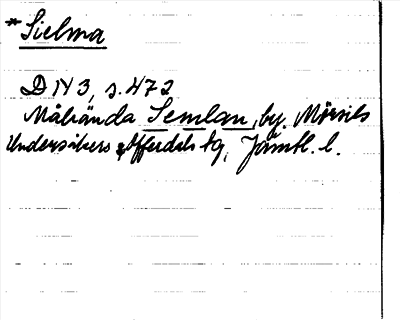 *Sielma
D N 3, s. 472
Målända Semlan, by. Mörsils
Undersåkers & Offerdals tg, Jämtl. l.